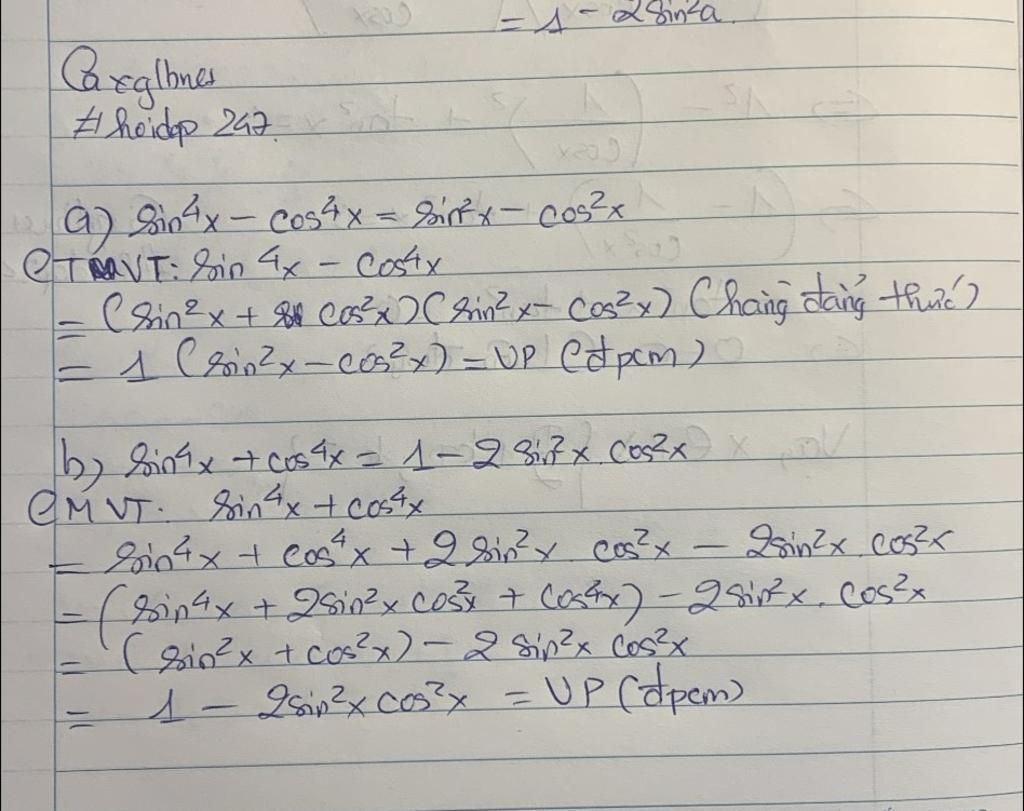 = 1 - 2sin²a
Carglbnes
# hoidap 247.
a) sin⁴x - cos⁴x = sin²x - cos²x
VT: sin⁴x - cos⁴x
= (sin²x + cos²x)(sin²x - cos²x) (hằng đẳng thức)
= 1 (sin²x - cos²x) = VP (đpcm)
b) sin⁴x + cos⁴x = 1 - 2 sin²x. cos²x
CM VT: sin⁴x + cos⁴x
= sin⁴x + cos⁴x + 2 sin²x cos²x - 2sin²x. cos²x
= (sin⁴x + 2sin²x cos²x + cos⁴x) - 2 sin²x. cos²x
= (sin²x + cos²x) - 2 sin²x cos²x
= 1 - 2sin²x cos²x = VP (đpcm)